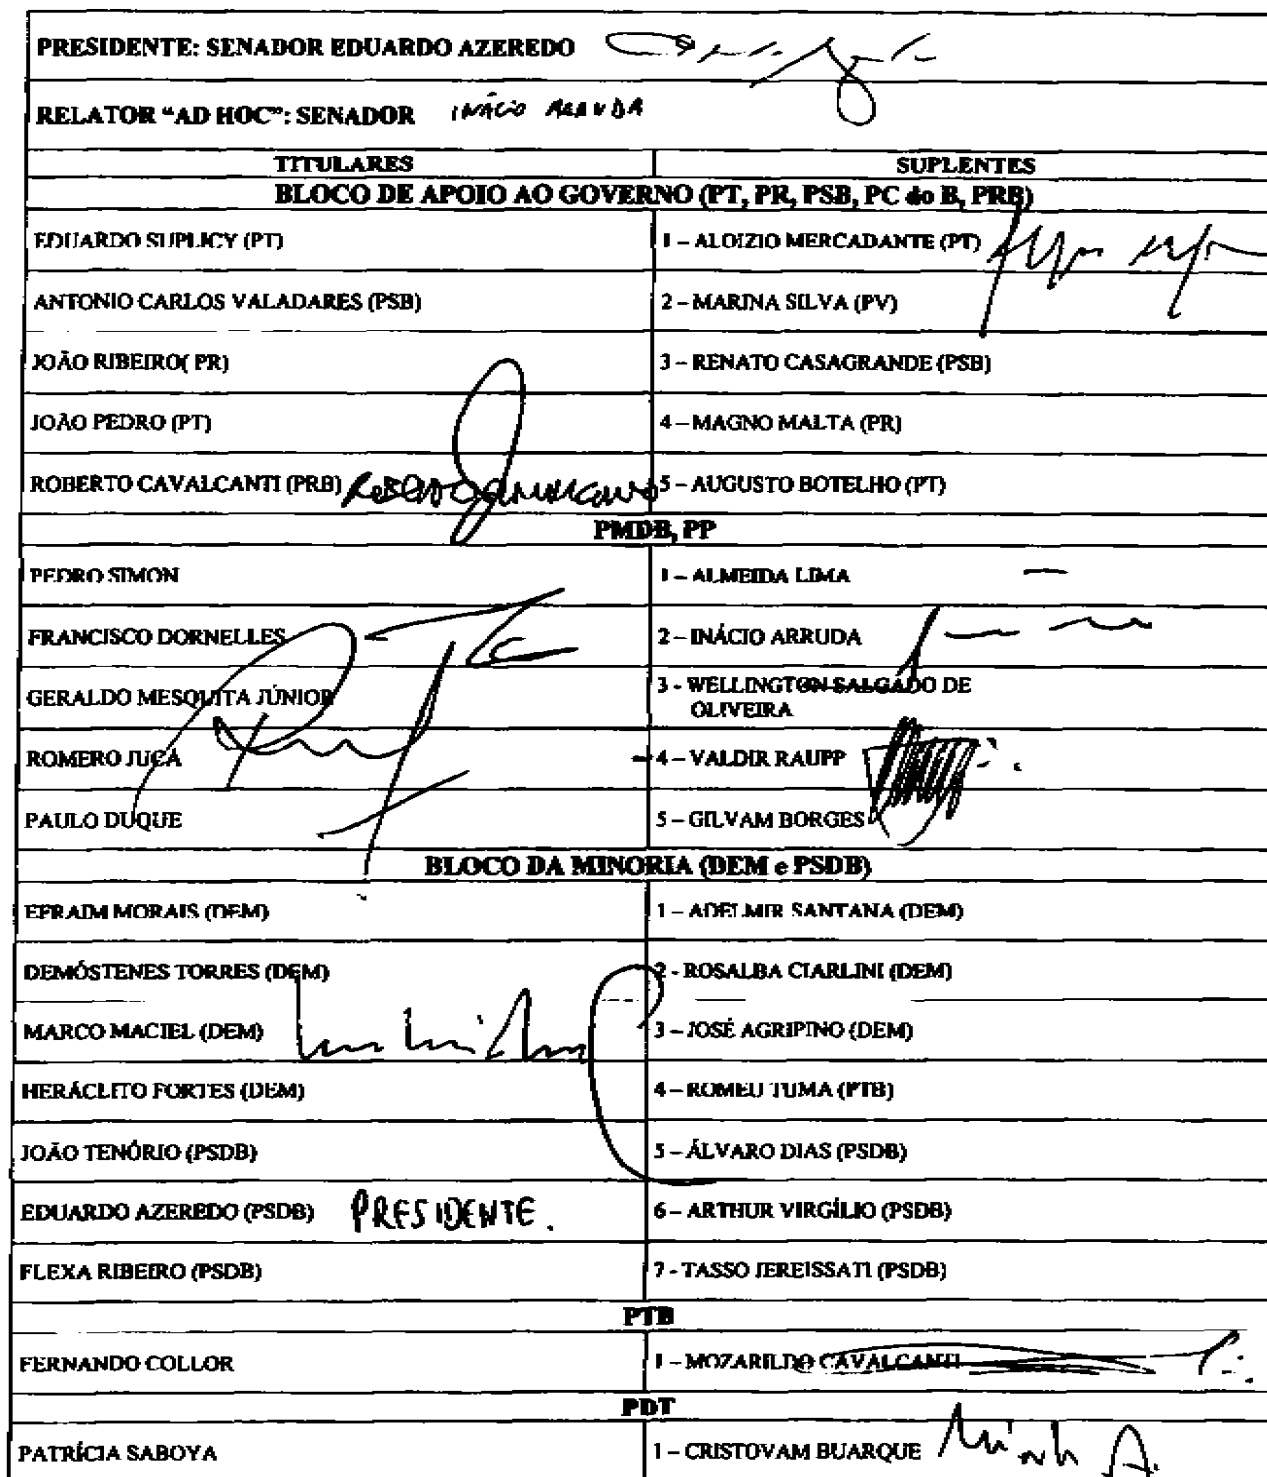 PRESIDENTE: SENADOR EDUARDO AZEREDO
RELATOR "AD HOC": SENADOR INÁCIO ARRUDA
TITULARES SUPLENTES
BLOCO DE APOIO AO GOVERNO (PT, PR, PSB, PC do B, PRB)
EDUARDO SUPLICY (PT) 1 – ALOIZIO MERCADANTE (PT)
ANTONIO CARLOS VALADARES (PSB) 2 – MARINA SILVA (PV)
JOÃO RIBEIRO( PR) 3 – RENATO CASAGRANDE (PSB)
JOÃO PEDRO (PT) 4 – MAGNO MALTA (PR)
ROBERTO CAVALCANTI (PRB) 5 – AUGUSTO BOTELHO (PT)
PMDB, PP
PEDRO SIMON 1 – ALMEIDA LIMA
FRANCISCO DORNELLES 2 – INÁCIO ARRUDA
GERALDO MESQUITA JÚNIOR 3 - WELLINGTON SALGADO DE
OLIVEIRA
ROMERO JUCÁ 4 – VALDIR RAUPP
PAULO DUQUE 5 – GILVAM BORGES
BLOCO DA MINORIA (DEM e PSDB)
EFRAIM MORAIS (DEM) 1 – ADELMIR SANTANA (DEM)
DEMÓSTENES TORRES (DEM) 2 - ROSALBA CIARLINI (DEM)
MARCO MACIEL (DEM) 3 – JOSÉ AGRIPINO (DEM)
HERÁCLITO FORTES (DEM) 4 – ROMEU TUMA (PTB)
JOÃO TENÓRIO (PSDB) 5 – ÁLVARO DIAS (PSDB)
EDUARDO AZEREDO (PSDB) PRESIDENTE. 6 – ARTHUR VIRGÍLIO (PSDB)
FLEXA RIBEIRO (PSDB) 7 - TASSO JEREISSATI (PSDB)
PTB
FERNANDO COLLOR 1 – MOZARILDO CAVALCANTI
PDT
PATRÍCIA SABOYA 1 – CRISTOVAM BUARQUE